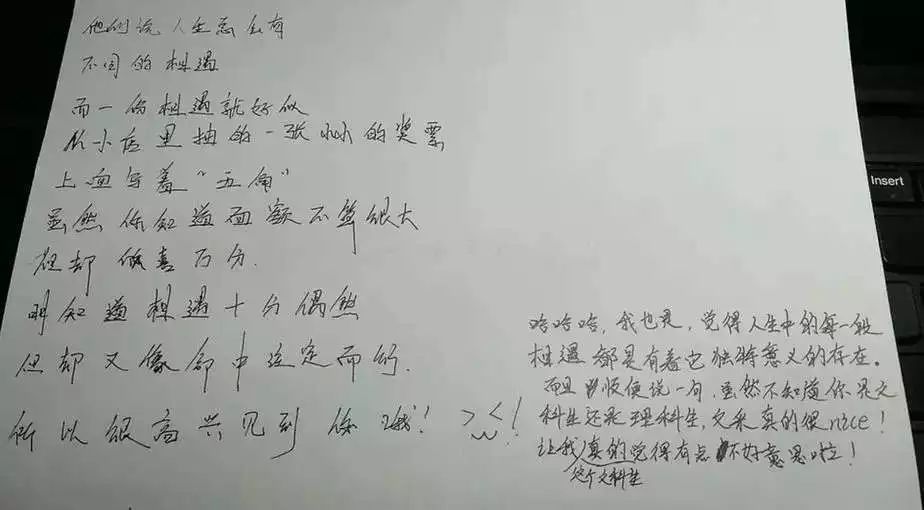 他们说人生总会有
不同的相遇
而一份相遇就好似
从小店里抽的一张小小的奖票
上面写着“五角”
虽然你知道面额不算很大
但却欣喜万分.
明知道相遇十分偶然
但却又像命中注定而的.
所以很高兴见到你哦!! >w<!
哈哈哈，我也是，觉得人生中的每一段
相遇都是有着它独特意义的存在。
而且顺便说一句，虽然不知道你是文
科生还是理科生，文采真的很nice!
让我真的觉得有点不好意思啦!
这个文科生
Insert